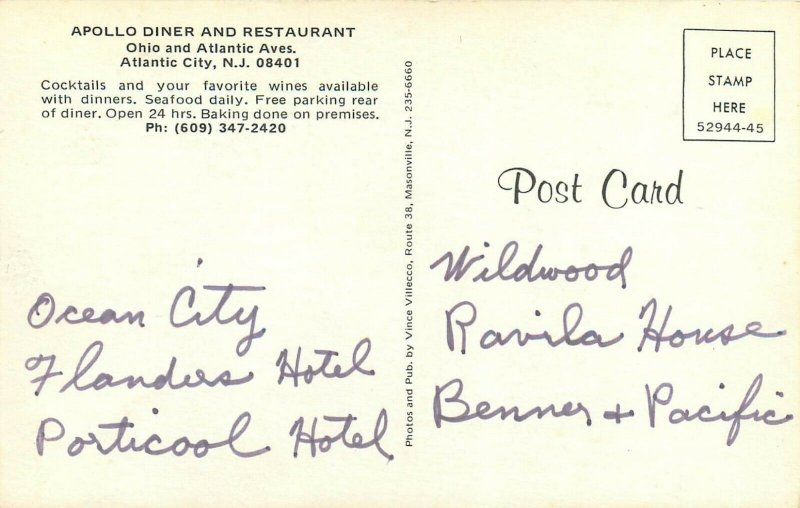 APOLLO DINER AND RESTAURANT
Ohio and Atlantic Aves.
Atlantic City, N.J. 08401
Cocktails and your favorite wines available
with dinners. Seafood daily. Free parking rear
of diner. Open 24 hrs. Baking done on premises.
Ph: (609) 347-2420
Ocean City
Flanders Hotel
Porticool Hotel
Photos and Pub. by Vince Villecco, Route 38, Masonville, N.J. 235-6660
PLACE
STAMP
HERE
52944-45
Post Card
Wildwood
Ravila House
Benner + Pacific